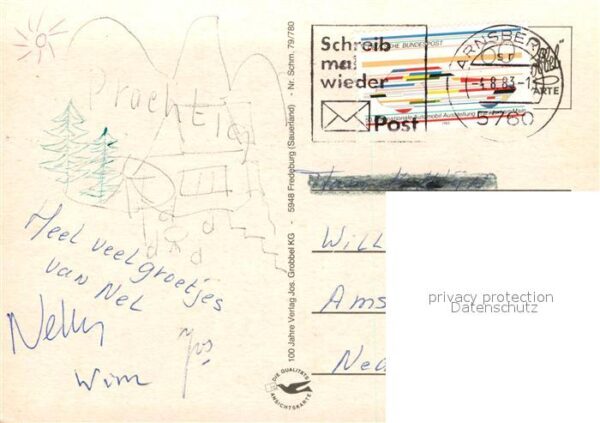 Prachtig
Heel veel groetjes
van Nel
Nelly
Jos
Wim
100 Jahre Verlag Jos. Grobbel KG - 5948 Fredeburg (Sauerland) - Nr. Schm. 79/780
DIE QUALITÄTS
ANSICHTSKARTE
Schreib
mal
wieder
Post
DEUTSCHE BUNDESPOST
Internationale Automobil Ausstellung
ARNSBERG
-4.8.83-1
5760
ARTE
Will
Ams
Ned
privacy protection
Datenschutz